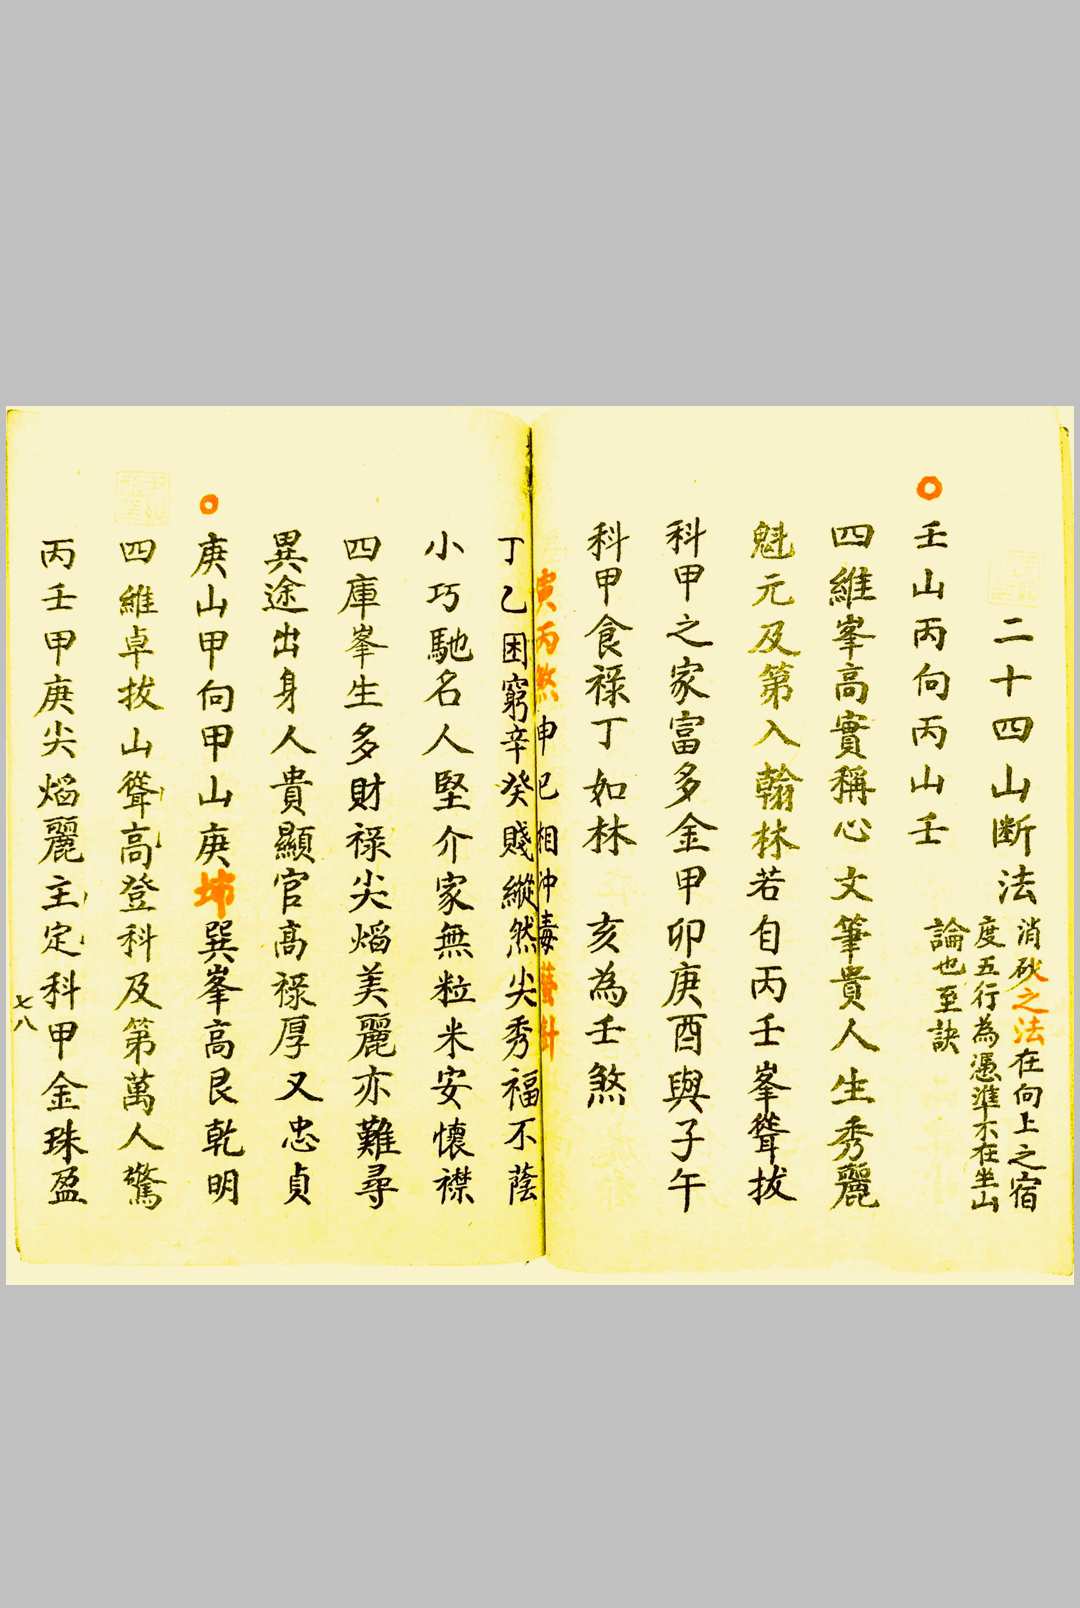 二十四山断法
消砂之法在向上之宿
度五行為憑準不在坐山
論也至訣
壬山丙向丙山壬
四維峯高實稱心文筆貴人生秀麗
魁元及第入翰林若自丙壬峯聳拔
科甲之家富多金甲卯庚酉與子午
科甲食禄丁如林 亥為壬煞
寅丙煞申巳相冲毒
丁乙困窮辛癸賤縱然尖秀福不蔭
小巧馳名人堅介家無粒米安懷襟
四庫峯生多財禄尖熖美麗亦難尋
異途出身人貴顯官高禄厚又忠貞
庚山甲向甲山庚
巽峯高艮乾明
四維卓拔山聳高登科及第萬人驚
丙壬甲庚尖熖麗主定科甲金珠盈
七八